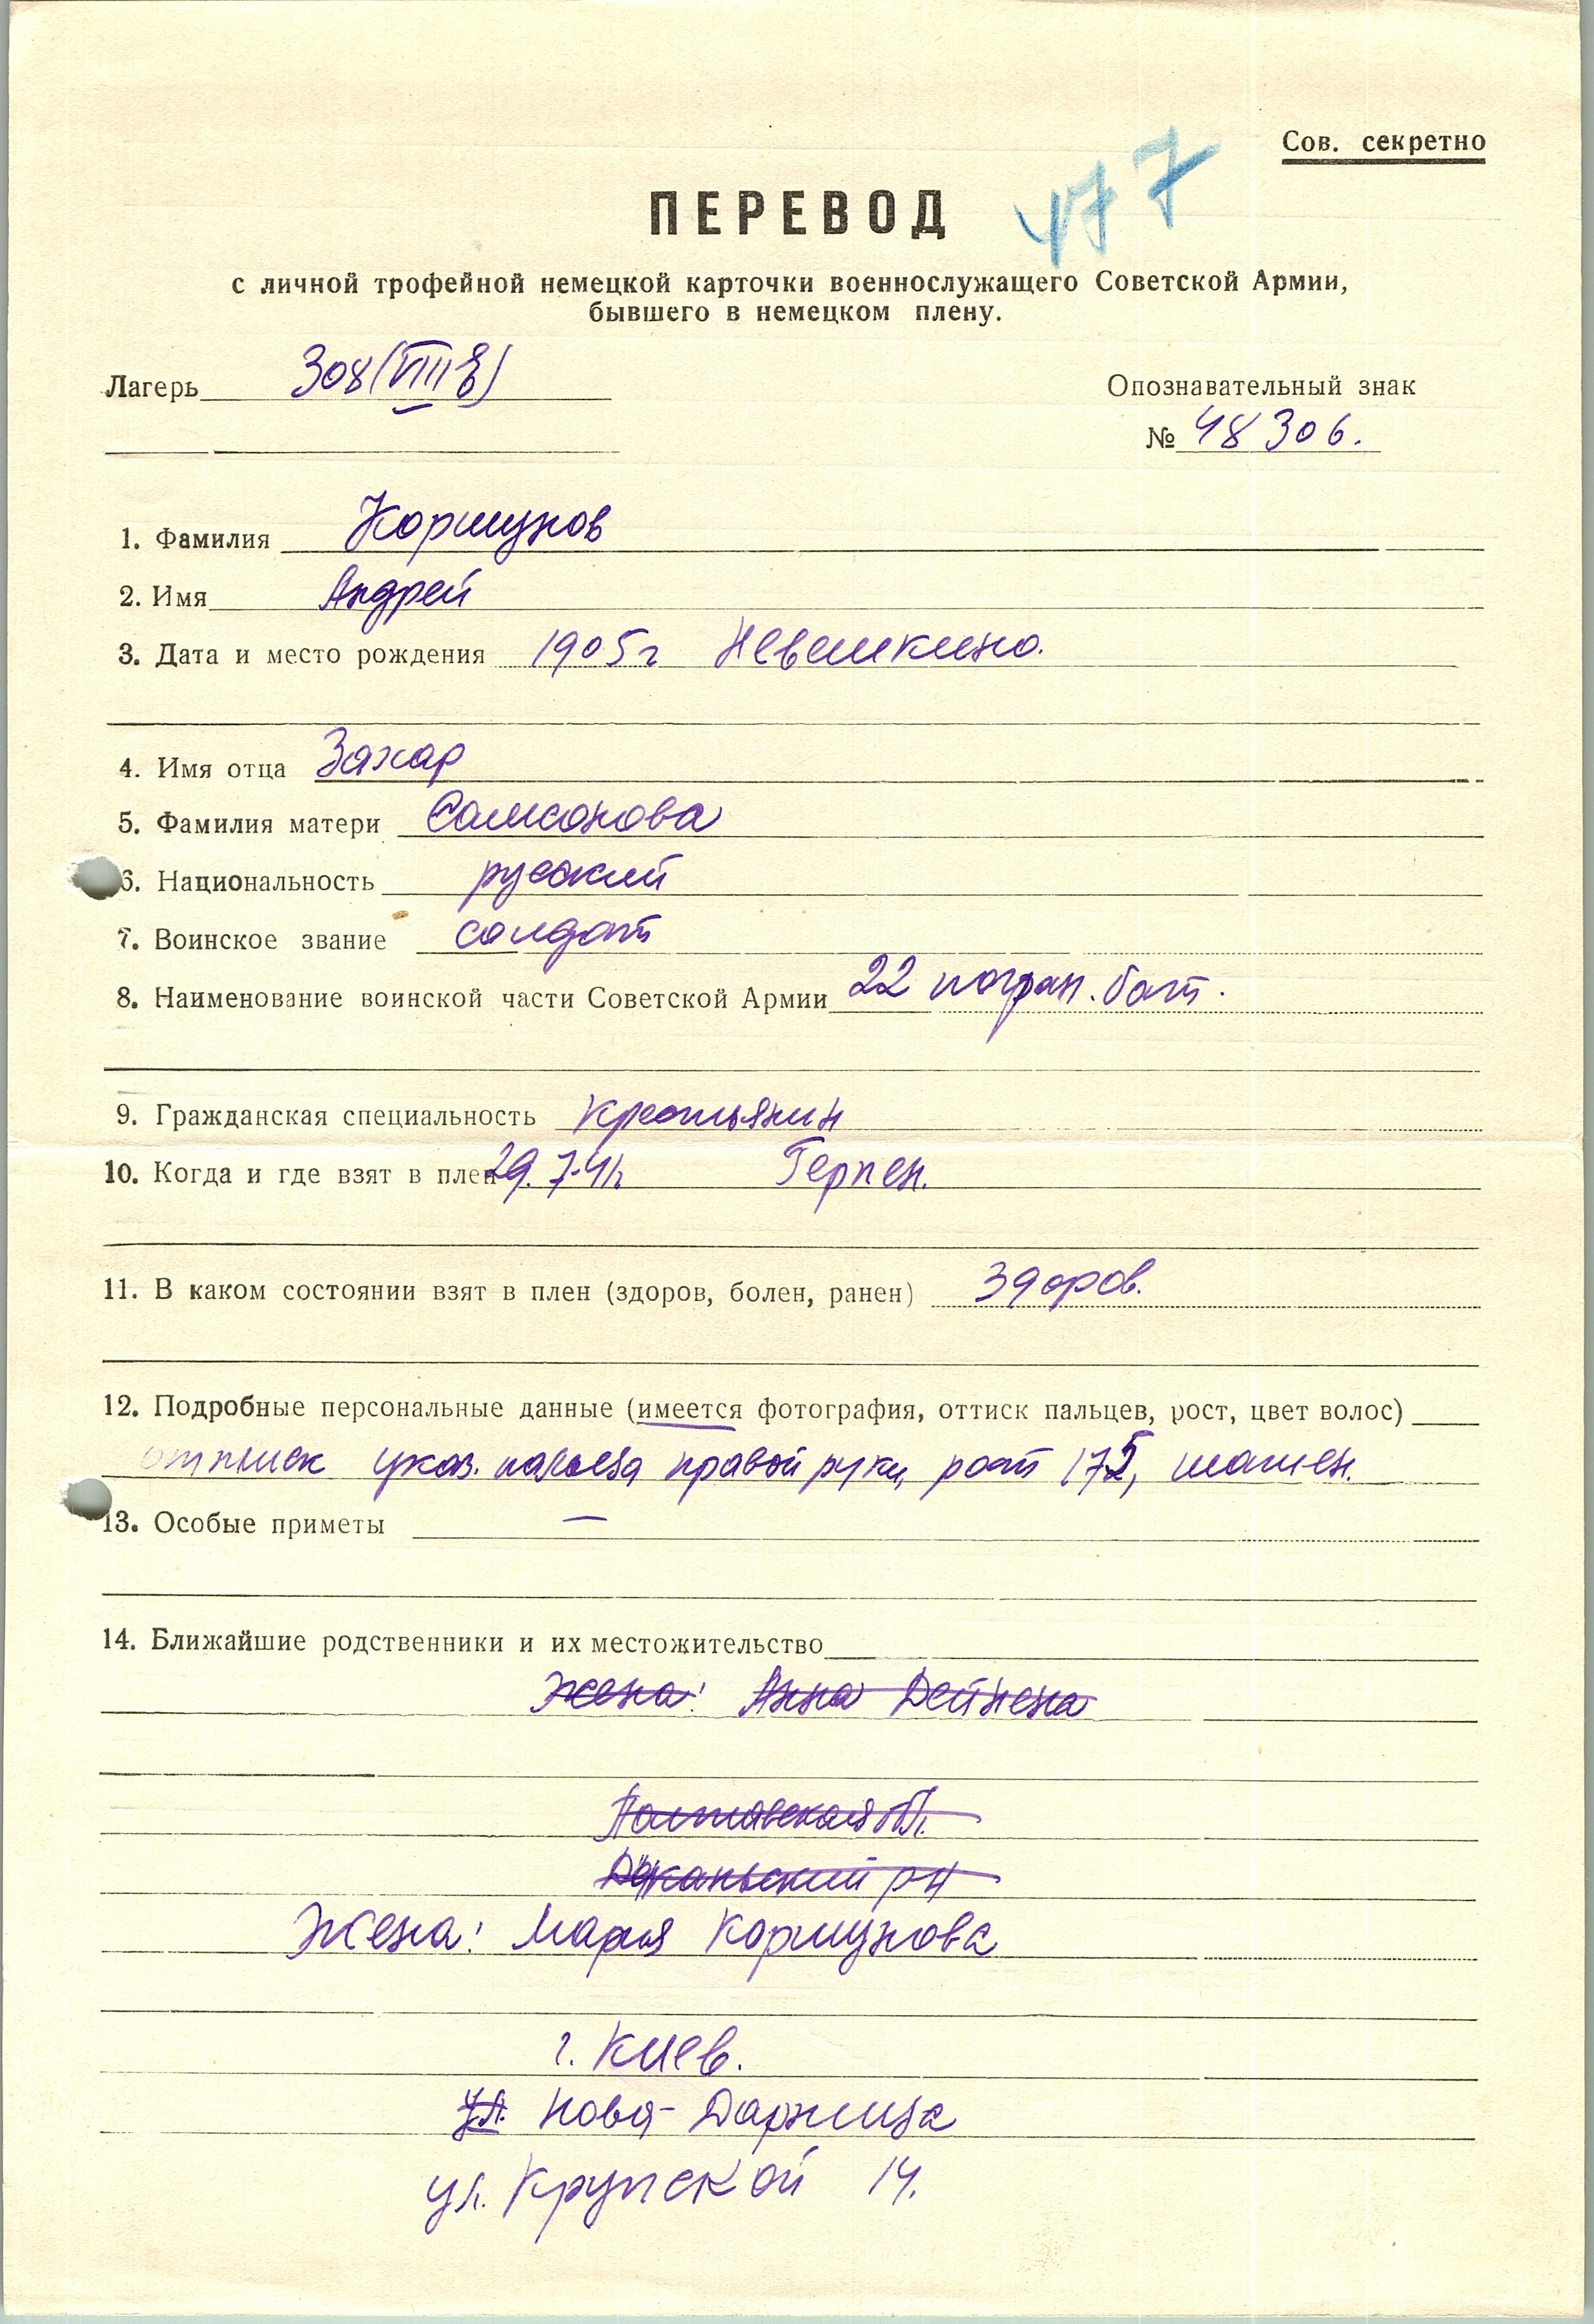 Сов. секретно
477
ПЕРЕВОД
с личной трофейной немецкой карточки военнослужащего Советской Армии,
бывшего в немецком плену.
Лагерь 308 (VIII Е)
Опознавательный знак
№ 48306.
1. Фамилия Коршунов
2. Имя Андрей
3. Дата и место рождения 1905 г Невешкино.
4. Имя отца Захар
5. Фамилия матери Самсонова
6. Национальность русский
7. Воинское звание солдат
8. Наименование воинской части Советской Армии 22 погран. бат.
9. Гражданская специальность крестьянин
10. Когда и где взят в плен 29.7.41г. Герпен.
11. В каком состоянии взят в плен (здоров, болен, ранен) здоров.
12. Подробные персональные данные (имеется фотография, оттиск пальцев, рост, цвет волос)
оттиск указ. пальца правой руки, рост 175, шатен.
13. Особые приметы —
14. Ближайшие родственники и их местожительство
Жена: Анна Дейнена
Полтавская обл.
рн
Жена: Мария Коршунова
г. Киев.
ул. Нова-Дарница
ул. Крупской 14.